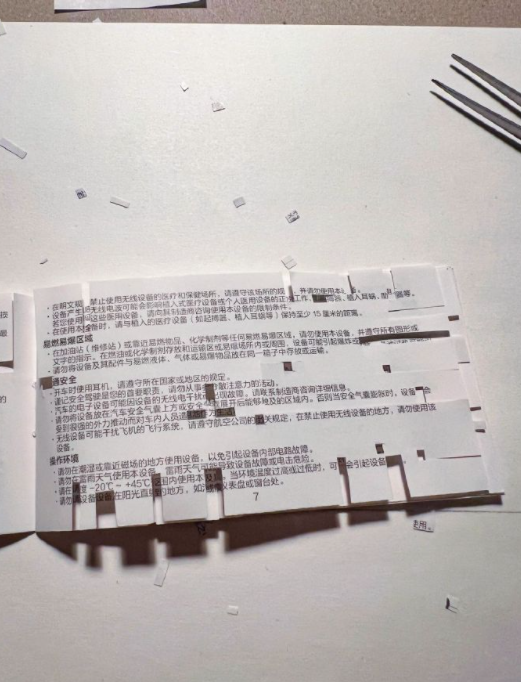 · 在明文规 禁止使用无线设备的医疗和保健场所，请遵守该场所的规 ，并请勿使用本
· 设备产生的无线电波可能会影响植入式医疗设备或个人医用设备的正常工作，
若您使用 这些医用设备，请向其制造商咨询使用本设备的限制条件。
· 在使用本设备时，请与植入的医疗设备（如起搏器、植入耳蜗等）保持至少 15 厘米的距离。
易燃易爆区域
· 在加油站（维修站）或靠近易燃物品、化学制剂等任何易燃易爆区域，请勿使用本设备，并遵守所有图形或
文字的指示。在燃油或化学制剂存放和运输区或易爆场所内或周围，设备可能引起爆炸或
· 请勿将设备及其配件与易燃液体、气体或易爆物品放在同一箱子中存放或运输。
通安全
· 开车时使用耳机，请遵守所在国家或地区的规定。
· 谨记安全驾驶是您的首要职责，请勿从事 散注意力的活动。
· 汽车的电子设备可能因设备的无线电干扰 出现故障，请联系制造商咨询详细信息。
· 请勿将设备放在汽车安全气囊上方或安全气囊展开后能够触及的区域内，否则当安全气囊膨胀时，设备
受到强的外力推动而对车内人员造
· 无线设备可能干扰飞机的飞行系统，请遵守航空公司的 关规定，在禁止使用无线设备的地方，请勿使用该
设备。
操作环境
· 请勿在潮湿或靠近磁场的地方使用设备，以免引起设备内部电路故障。
· 请勿在雷雨天气使用本设备，雷雨天气可能导致设备故障或电击危险。
· 请在温度 -20℃～ +45℃ 范围内使用本设备，当环境温度过高或过低时，可 会引起设备
· 请勿将设备 在阳光直射的地方，如 仪表盘或窗台处。
7
使用。